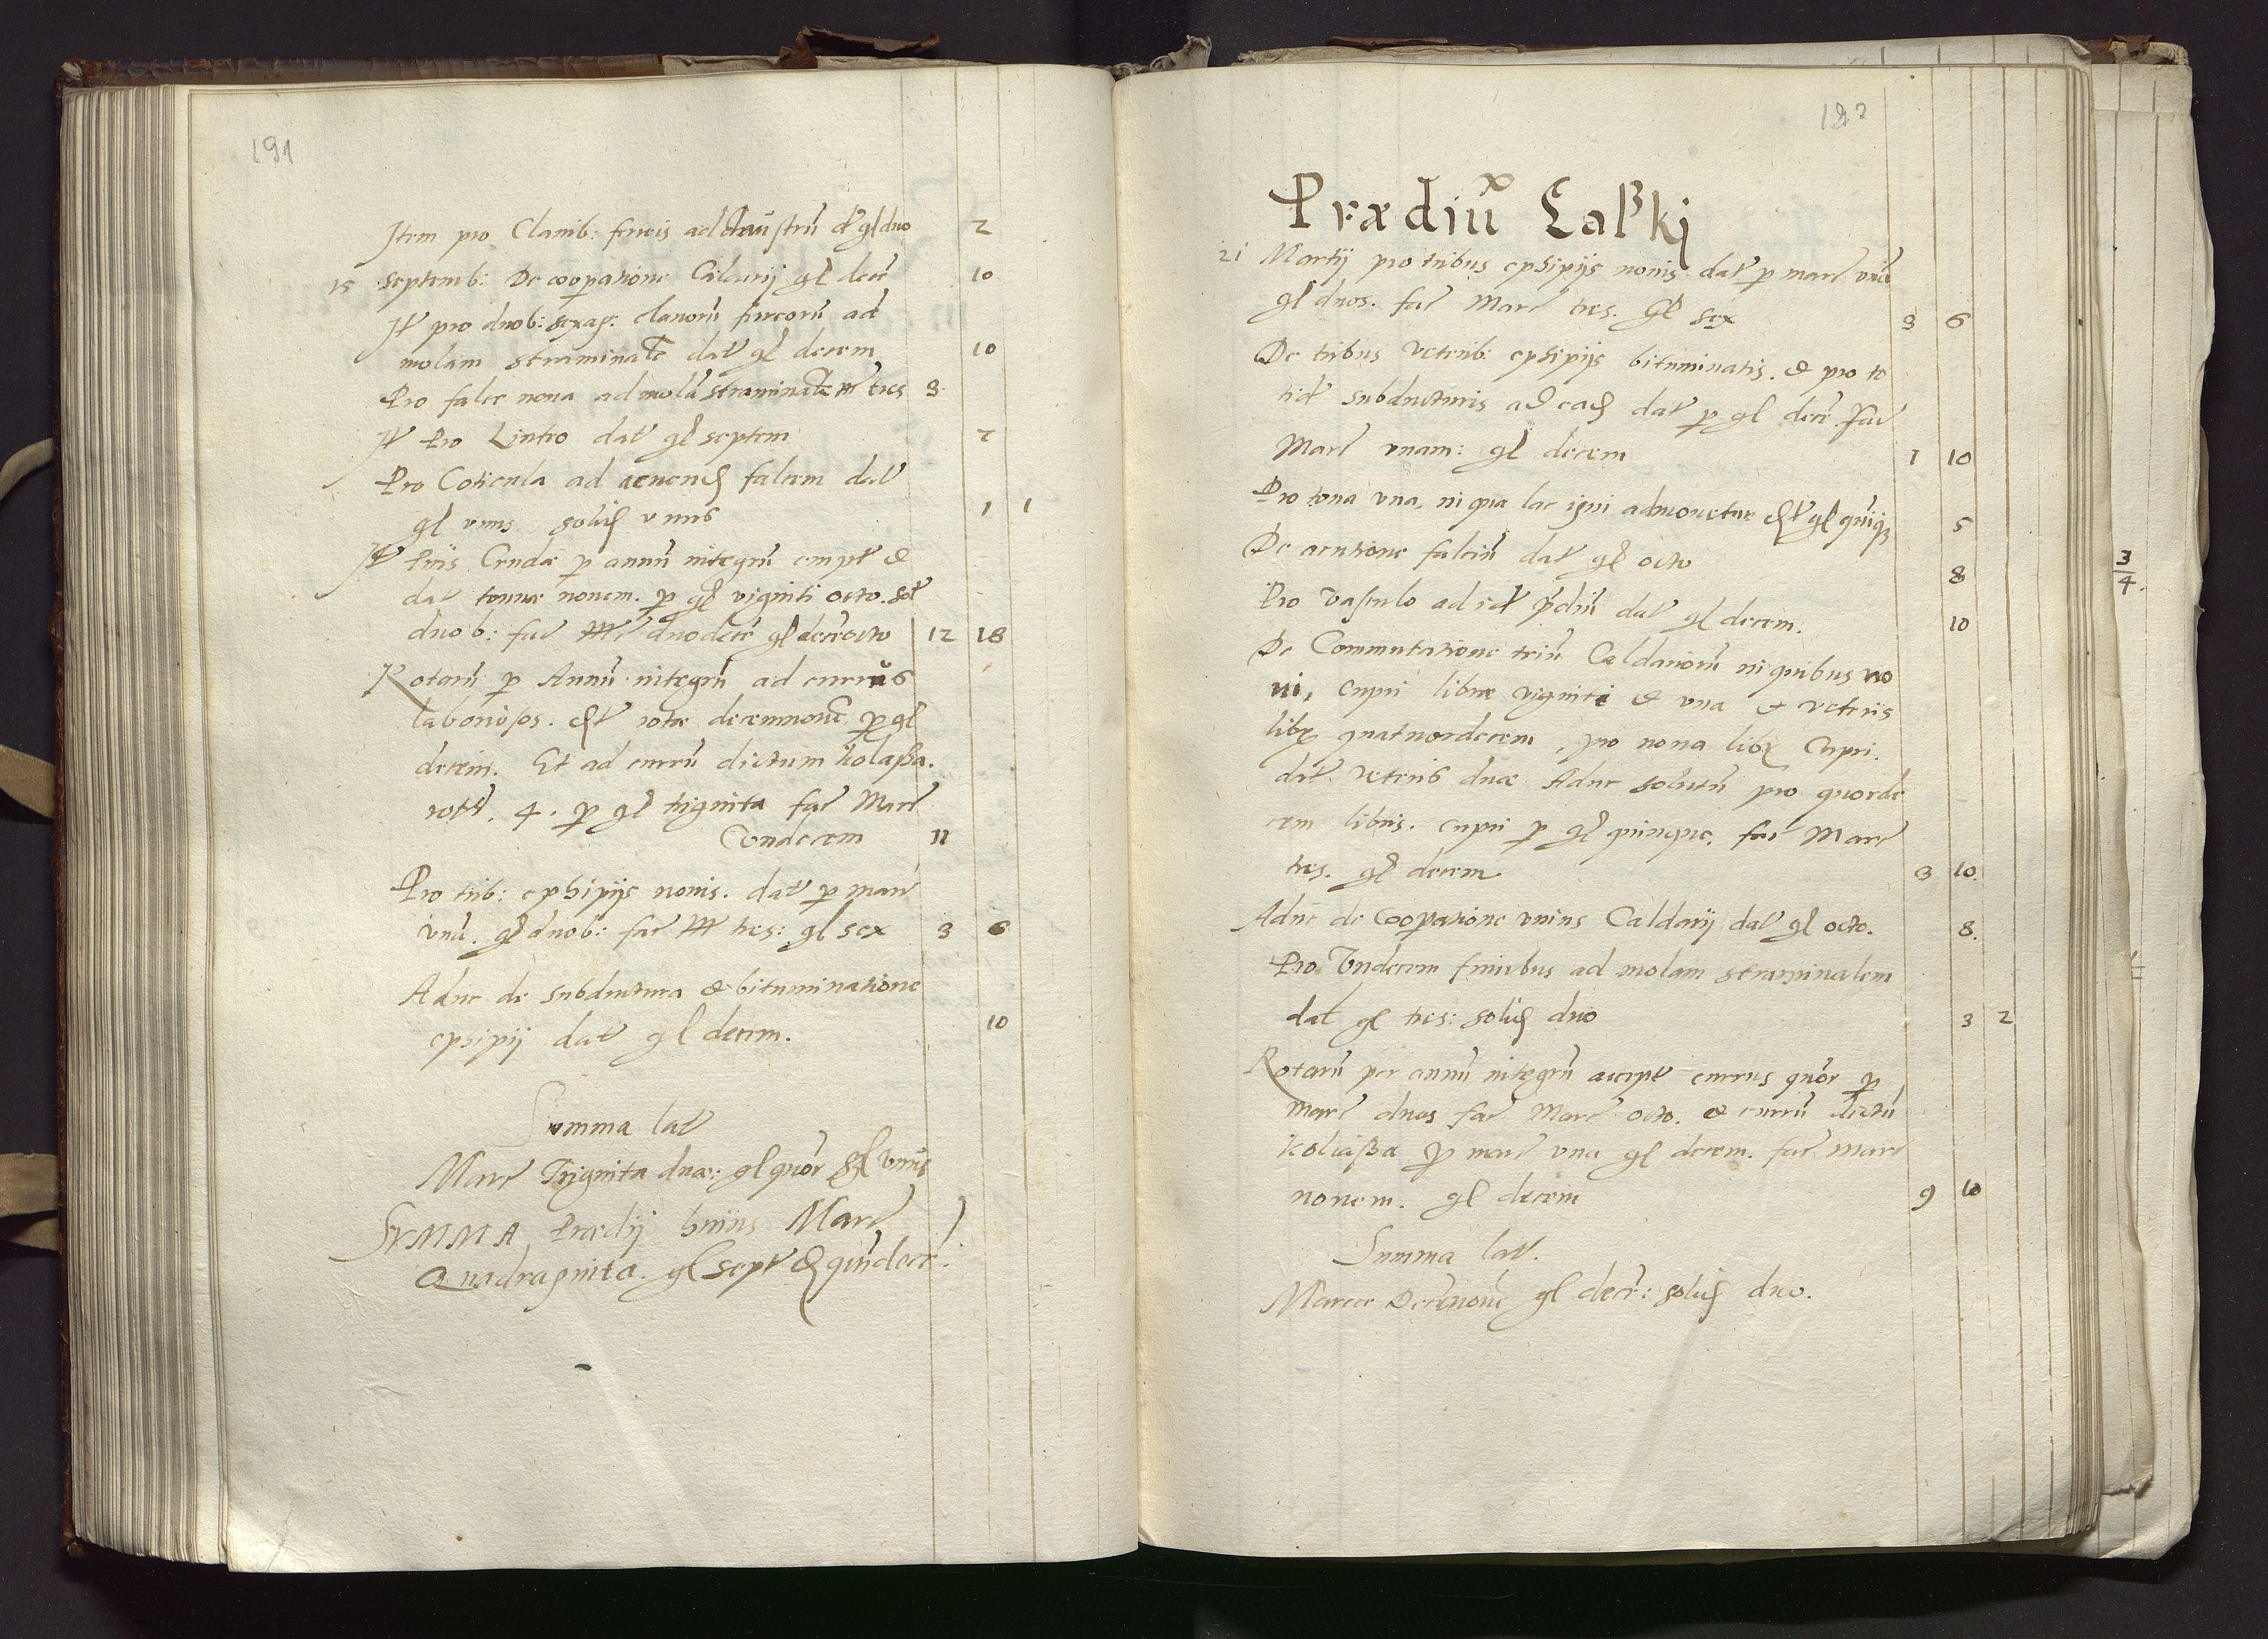 191
Item pro Clauib: ferreis ad claustrũ dt gl duo 2
15 Septemb: De cooparatione Caldarij gl decē 10
It pro duob: sexag: clauorũ ferreorũ ad
molam straminalē dat gl decem 10
Pro falce noua ad molã straminalē mr tres 3
It Pro Lintro dat gl septem 7
Pro Coticula ad acuend falcem dat
gl vnus solid vnus 1 1
It Piis Crudæ p annũ integrũ empt &
dat tonnæ nouem. p gl viginti octo. sol
duob: fac Mr duodecē gl decē octo 12 18
Rotarũ p Annũ integrũ ad currus
laboriosos. dt rotæ decemnouē p gl
decem. Et ad currũ dictum kolaßa.
rotæ. 4. p gl triginta fac Marc
Vndecem 11
Pro trib: ephipijs nouis. dat p marc
vnã. gl duob: fac Mr tres: gl sex 3 6
Adhuc de subductura & bituminatione
epsipij dat gl decem. 10
Summa lat
Marc Triginta duæ: gl quor sol vnus
SVMMA Prædij huius Marc
Quadraginta. gl sept d quindecē.
192
Prædiũ Laßkj
21 Martij pro tribus ephipijs nouis dat p marc vnã
gl duos. fac Marc tres. gl sex 3 6
De tribus veterib: ephipijs bituminatis. & pro to
tid subducturis ad ead dat p gl decē fac
Marc vnam: gl decem 1 10
Pro tona vna, in qua lac igni admouetur dt gl quinq3 5
De acutione falciũ dat gl octo 8
Pro Vasculo ad id pdiũ dat gl decem. 10
De Commutatione triũ Caldariorũ in quibus no
ui, cupri libræ viginti & vna & veteris
libræ quatuordecem, pro noua libra Cupri.
dat veteris duæ Adhuc solutũ pro quorde
cem libris. cupri p gl quinque. fac Marc
tres. gl decem 3 10.
Adhuc de Cooparatione vnius Caldarij dat gl octo. 8.
Pro Vndecem funibus ad molam straminalem
dat gl tres: solid duo 3 2
Rotarũ per annũ integrũ accipt currus quor p
marc duas fac Marc octo. & currũ dictũ
kolaßa p marc vna gl decem. fac marc
nouem. gl decem 9 10
Summa lat.
Marcæ Decēnouē gl decē: solid duo.
3
4.